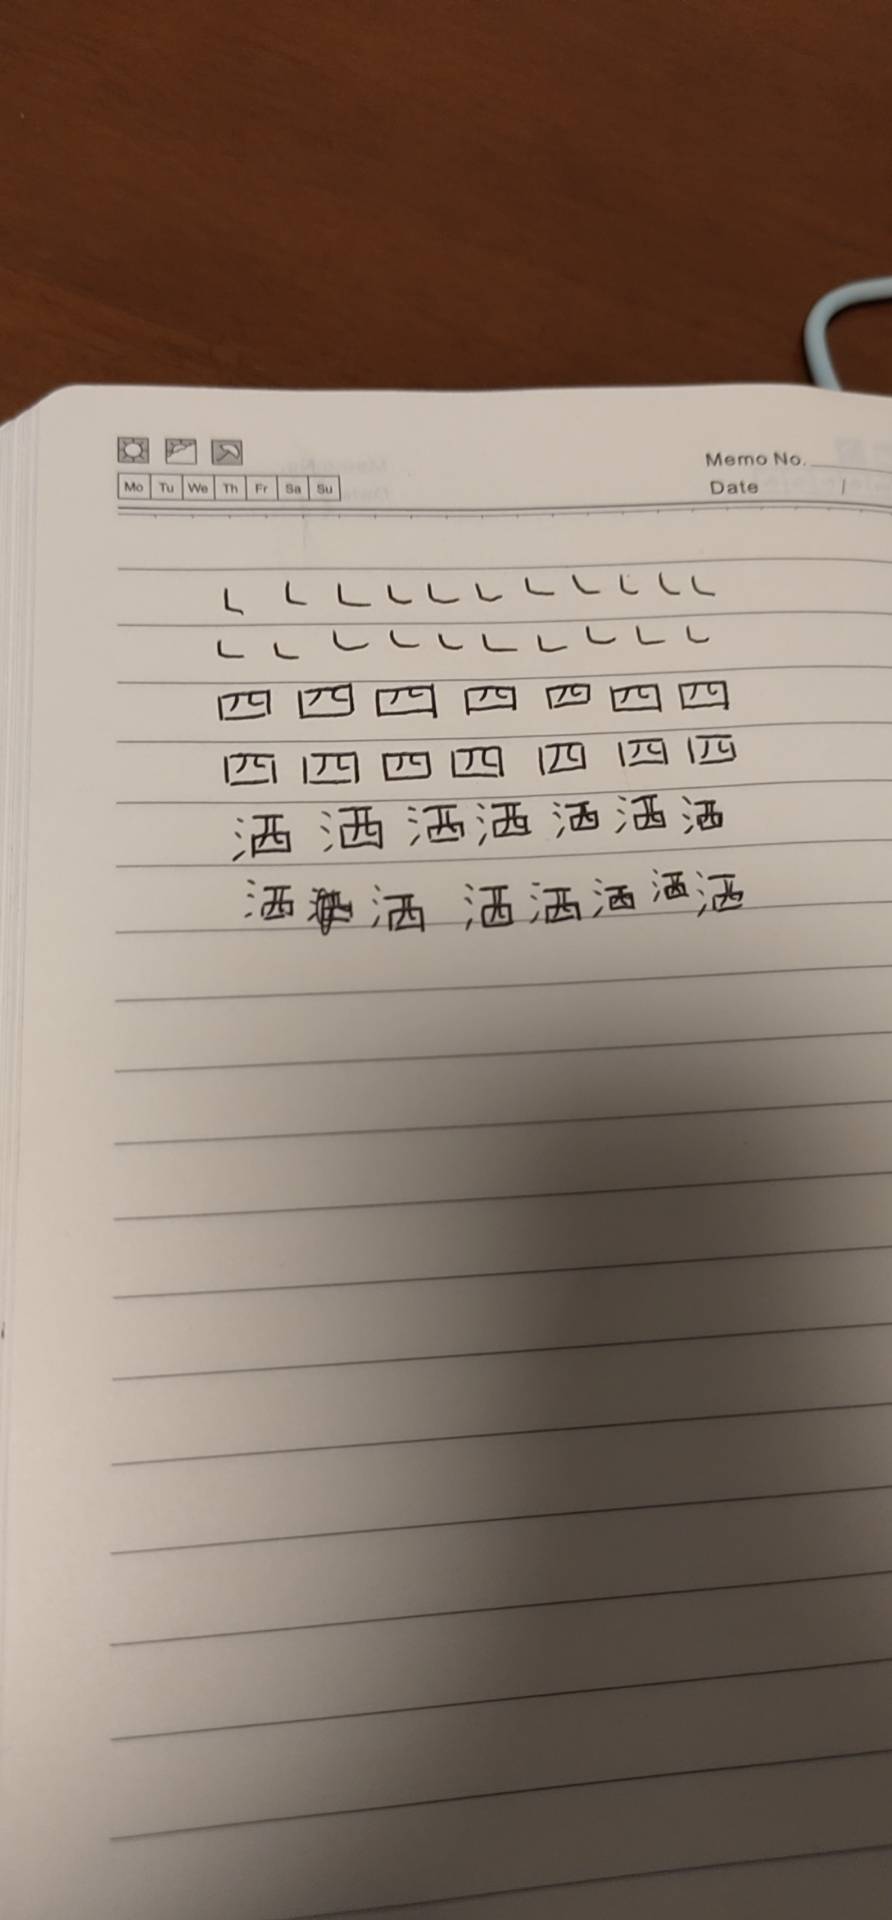 Memo No.
Mo Tu We Th Fr Sa Su
Date /
㇄ ㇄ ㇄ ㇄ ㇄ ㇄ ㇄ ㇄ ㇄ ㇄ ㇄
㇄ ㇄ ㇄ ㇄ ㇄ ㇄ ㇄ ㇄ ㇄ ㇄
四 四 四 四 四 四 四
四 四 四 四 四 四 四
洒 洒 洒 洒 洒 洒 洒
洒 洒 洒 洒 洒 洒 洒